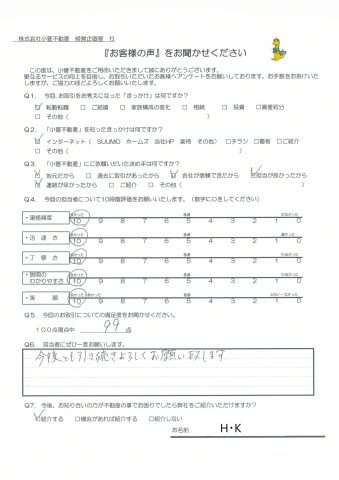 株式会社小菅不動産 経営企画室 行
『お客様の声』をお聞かせください
この度は、小菅不動産をご用命いただきまして誠にありがとうございます。
更なるサービスの向上を目指し、お取引いただいたお客様へアンケートをお願いしております。お手数をお掛けいたしますが、ご協力のほどよろしくお願い致します。
Q1. 今回、お取引をお考えになった「きっかけ」は何ですか？
☑転勤転職 □ご結婚 □家族構成の変化 □相続 □投資 □資産処分
□その他（ ）
Q2. 「小菅不動産」を知ったきっかけは何ですか？
☑インターネット（ SUUMO ホームズ 当社HP 楽待 その他） □チラシ □看板 □ご紹介
□その他（ ）
Q3. 「小菅不動産」にご依頼いただいた決め手は何ですか？
☑地元だから □過去に取引があったから ☑会社が信頼できたから ☑担当が良かったから
☑連絡が早かったから □ご紹介 □その他（ ）
Q4. 今回の担当者について10段階評価をお願いいたします。（数字に○をしてください）
・連絡頻度 10 9 8 7 6 5 4 3 2 1 0
・迅速さ 10 9 8 7 6 5 4 3 2 1 0
・丁寧さ 10 9 8 7 6 5 4 3 2 1 0
・説明のわかりやすさ 10 9 8 7 6 5 4 3 2 1 0
・笑顔 10 9 8 7 6 5 4 3 2 1 0
Q5. 今回のお取引についての満足度をお聞かせください。
100点満点中 99 点
Q6. 担当者にぜひ一言お願いします。
今後とも引き続きよろしくお願い致します
Q7. 今後、お知り合いの方が不動産の事でお困りでしたら弊社をご紹介いただけますか？
☑紹介する □機会があれば紹介する □紹介しない
お名前 H・K